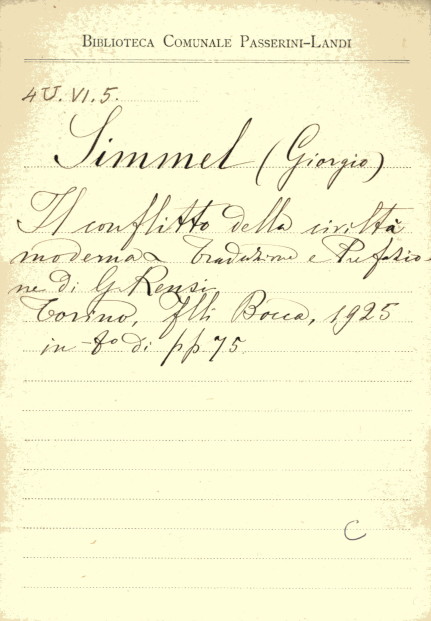 BIBLIOTECA COMUNALE PASSERINI-LANDI
4U.VI.5.
Simmel (Giorgio)
Il conflitto della civiltà
moderna Traduzione e Prefazio
ne di G. Rensi
Torino, Flli Bocca, 1925
in-8º di pp 75
C